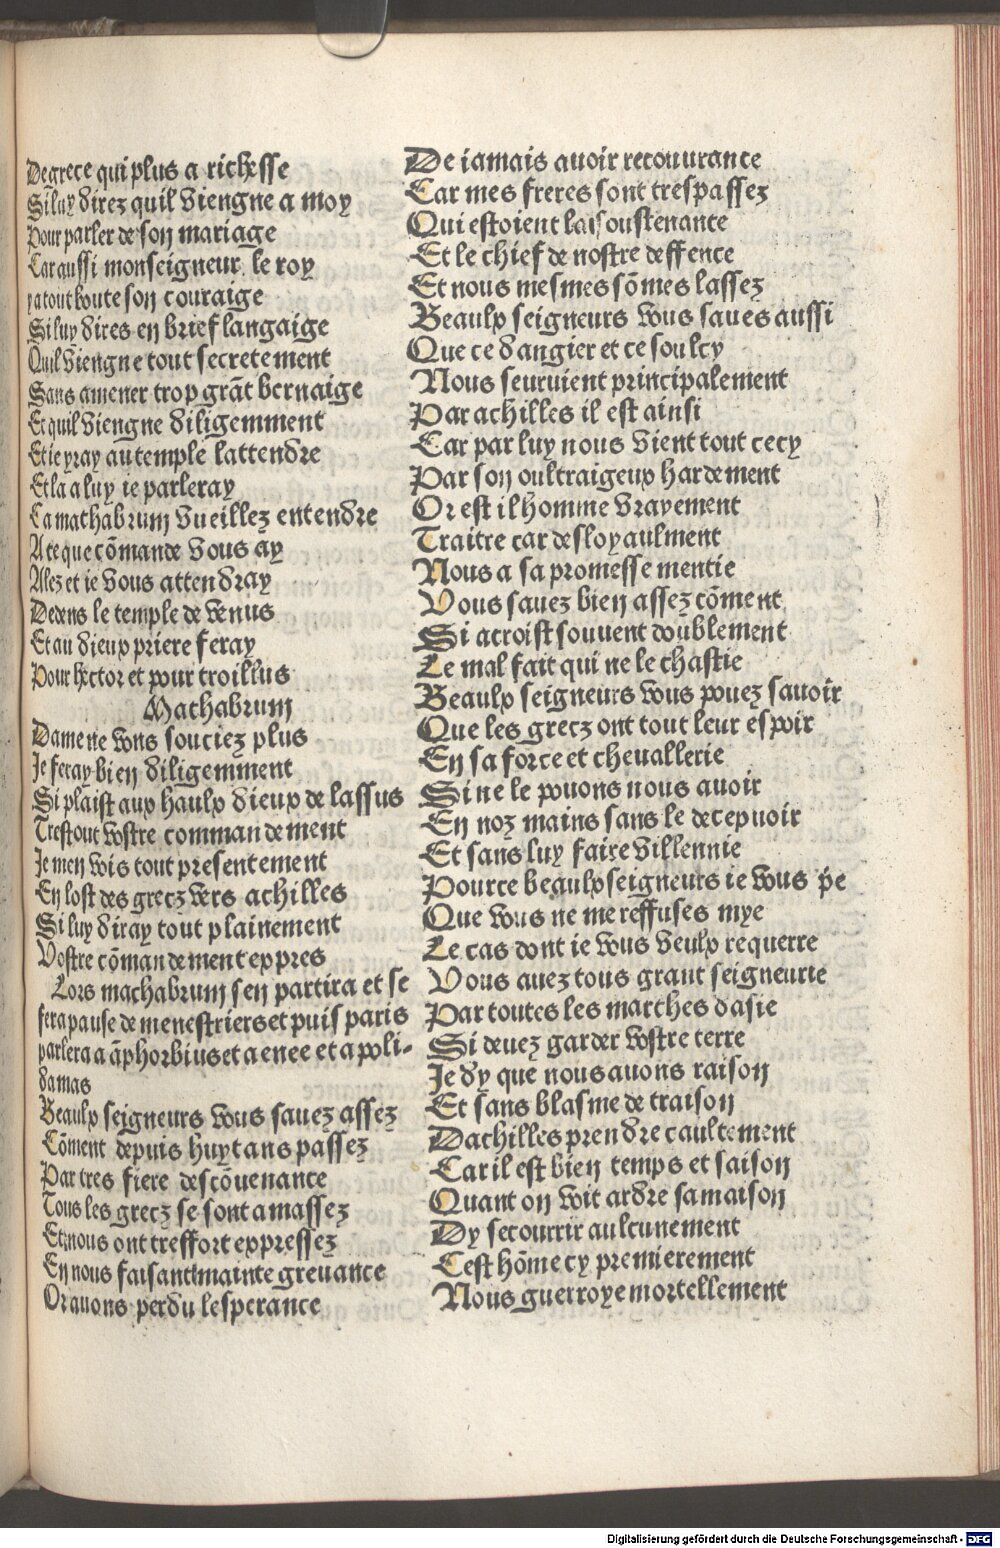 De grece qui plus a richesse
Si luy direz quil viengne a moy
Pour parler de son mariage
Car aussi monseigneur le roy
y a tout boute son couraige
Si luy dires en brief langaige
Quil viengne tout secretement
Sans amener trop grāt bernaige
Et quil viengne diligemment
Et ie yray au temple lattendre
Et la a luy ie parleray
Ca mathabrun vueillez entendre
A ce que cōmande vous ay
Alez et ie vous attendray
Dedens le temple de venus
Et au dieux priere feray
Pour hector et pour troillus
Mathabrun
Dame ne vons souciez plus
Je feray bien diligemment
Si plaist aux haulx dieux de lassus
Trestout vostre commandement
Je men vois tout presentement
En lost des grecz vers achilles
Si luy diray tout plainement
Vostre cōmandement expres
Lors machabrun sen partira et se
fera pause de menestriers et puis paris
parlera a āphorbius et a enee et a poli-
damas
Beaulx seigneurs vous sauez assez
Cōment depuis huyt ans passez
Par tres fiere descōuenance
Tous les grecz se sont amassez
Et nous ont treffort expressez
En nous faisant mainte greuance
Or auons perdu lesperance
De iamais auoir recouurance
Car mes freres sont trespassez
Qui estoient la soustenance
Et le chief de nostre deffence
Et nous mesmes sōmes lassez
Beaulx seigneurs vous saues aussi
Que ce dangier et ce soulcy
Nous seuruient principalement
Par achilles il est ainsi
Car par luy nous vient tout cecy
Par son oultraigeux hardement
Or est il homme vrayement
Traitre car desloyaulment
Nous a sa promesse mentie
Vous sauez bien assez cōment
Si acroist souuent doublement
Le mal fait qui ne le chastie
Beaulx seigneurs vous pouez sauoir
Que les grecz ont tout leur espoir
En sa force et cheuallerie
Si ne le pouons nous auoir
En noz mains sans le decepuoir
Et sans luy faire villennie
Pource beaulx seigneurs ie vous p̄e
Que vous ne me reffuses mye
Le cas dont ie vous veulx requerre
Vous auez tous grant seigneurie
Par toutes les marches dasie
Si deuez garder vostre terre
Je dy que nous auons raison
Et sans blasme de traison
Dachilles prendre caultement
Car il est bien temps et saison
Quant on voit ardre sa maison
Dy secourrir aulcunement
Cest hōme cy premierement
Nous guerroye mortellement
Digitalisierung gefördert durch die Deutsche Forschungsgemeinschaft - DFG